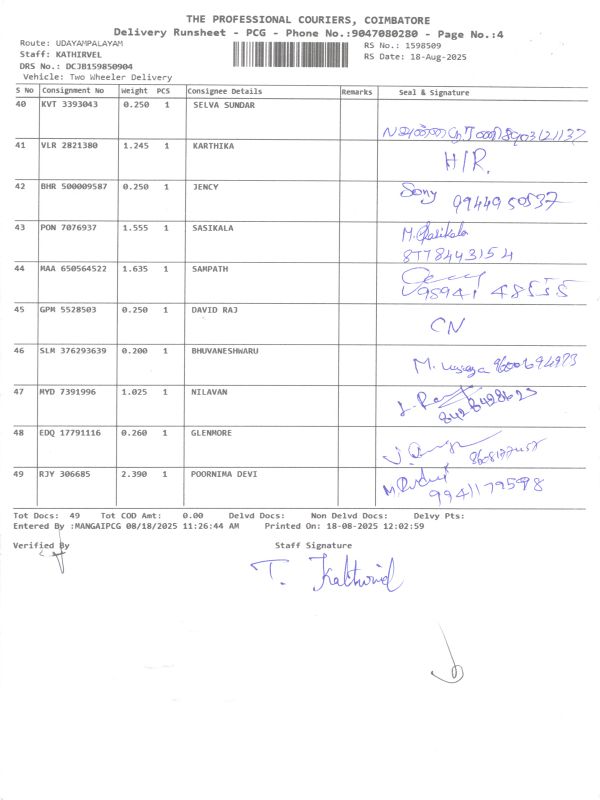 THE PROFESSIONAL COURIERS, COIMBATORE
Delivery Runsheet - PCG - Phone No.:9047080280 - Page No.:4
Route: UDAYAMPALAYAM
Staff: KATHIRVEL
DRS No.: DCJB159850904
Vehicle: Two Wheeler Delivery
RS No.: 1598509
RS Date: 18-Aug-2025
S No Consignment No Weight PCS Consignee Details Remarks Seal & Signature
40 KVT 3393043 0.250 1 SELVA SUNDAR
41 VLR 2821380 1.245 1 KARTHIKA H/R.
42 BHR 500009587 0.250 1 JENCY Sony 9944950537
43 PON 7076937 1.555 1 SASIKALA M. Sasikala
8778443154
44 MAA 650564522 1.635 1 SAMPATH
45 GPM 5528503 0.250 1 DAVID RAJ CN
46 SLM 376293639 0.200 1 BHUVANESHWARU M. 9600694973
47 MYD 7391996 1.025 1 NILAVAN
8428428623
48 EDQ 17791116 0.260 1 GLENMORE
49 RJY 306685 2.390 1 POORNIMA DEVI 9941179598
Tot Docs: 49 Tot COD Amt: 0.00 Delvd Docs: Non Delvd Docs: Delvy Pts:
Entered By :MANGAIPCG 08/18/2025 11:26:44 AM Printed On: 18-08-2025 12:02:59
Verified By Staff Signature